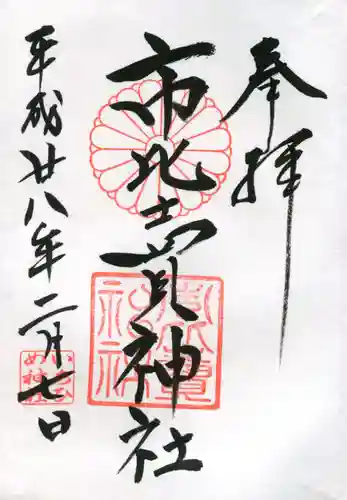 奉拝
市比賣神社
平成廿八年二月七日